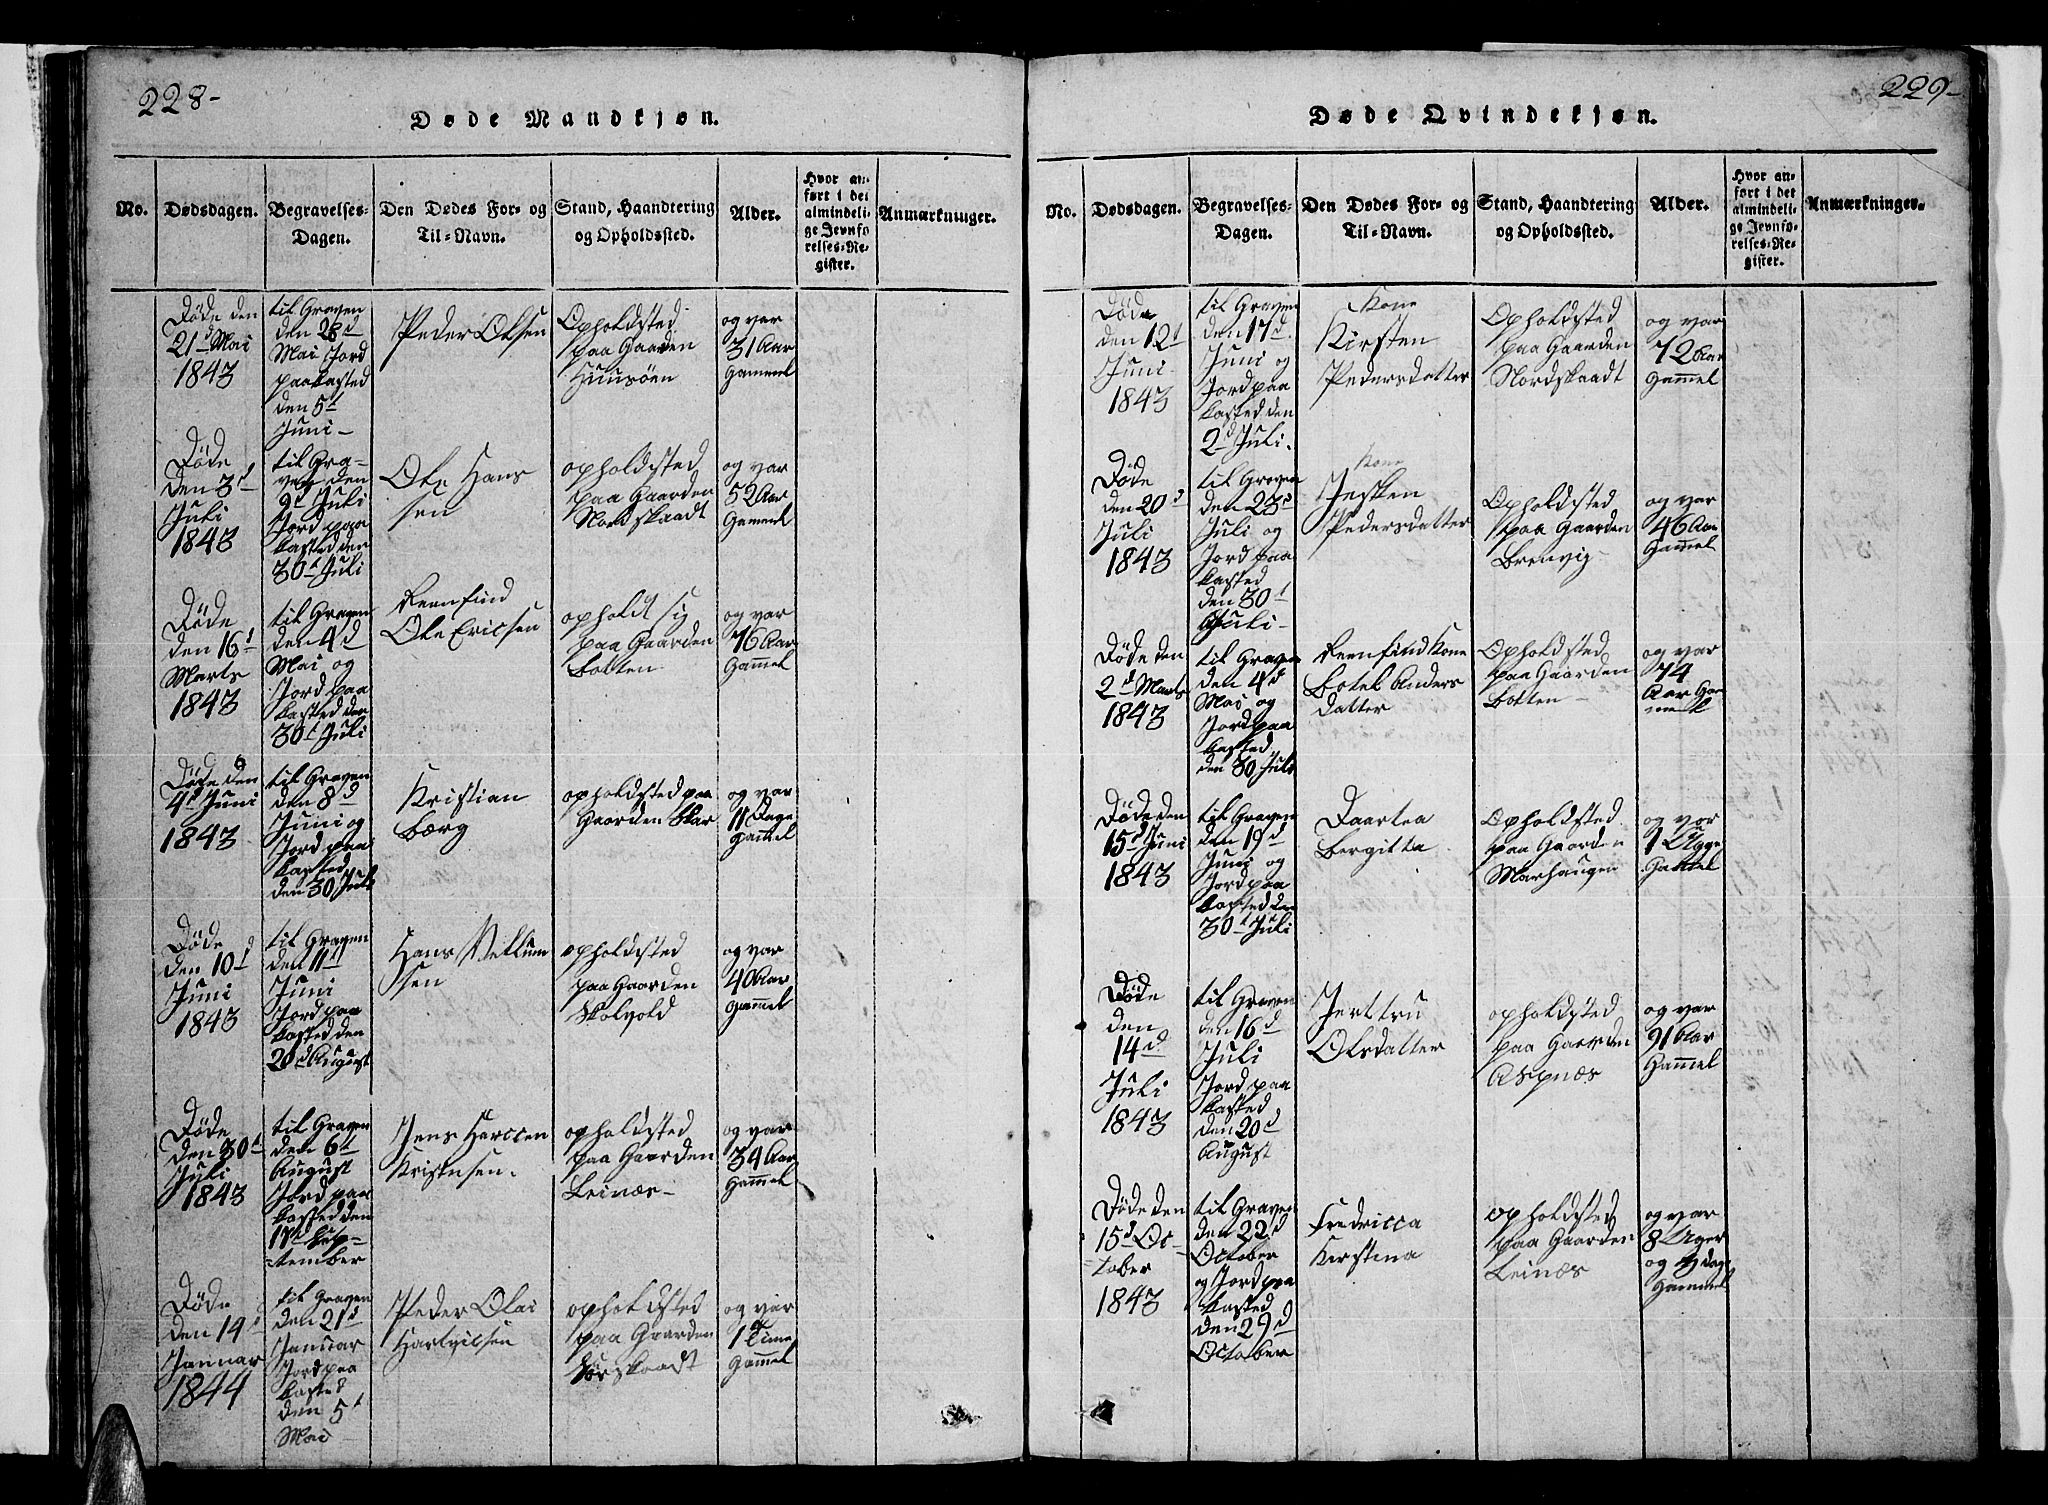 228-
Døde Mandkjøn.
No.
Dødsdagen.
Begravelses-
Dagen.
Den Dødes For- og
Til-Navn.
Stand, Haandtering
og Opholdssted.
Alder.
Hvor an-
ført i det
almindeli-
ge Jevnfø-
relses-Re-
gister.
Anmærkninger.
Døde den
21d Mai
1843
til Graven
den 28d
Mai Jord
paakasted
den 5t
Juni-
Peder Olsen
Opholdsted
paa Gaarden
og var
31 Aar
Gammel
Døde
den 3d
Juli
1843
til Gra-
ven den
9d Juli
Jord paa
kasted den
30t Juli
Ole Hans
sen
opholdsted
paa Gaarden
Nordskaadt
og var
52 Aar
Gammel
Døde
den 16t
Marts
1843
til Graven
den 4d
Mai og
Jord paa
kasted den
30t Juli
Reenfind
Ole Ericsen
opholdt sig
paa Gaarden
Botten
og var
76 Aar
Gammel
Døde den
4d Juni
1843
til Graven
den 8d
Juni og
Jord paa
kasted
den 30 Juli
Kristian
Bærg
opholdsted paa
Gaarden Skar
og var
11 Dage
Gammel
Døde
den 10d
Juni
1843
til Graven
den 11t
Juni
Jord paa
kasted den
20d August
Hans Villum
sen
opholdsted
paa Gaarden
Skolvold
og var
40 Aar
Gammel
Døde
den 30t
Juli
1843
til Graven
den 6t
August
Jord paa
kasted den
17d Sep-
-tember
Jens
Kristensen.
opholdsted
paa Gaarden
Leinæs-
og var
34 Aar
Gammel
Døde
den 19d
Januar
1844
til Graven
den 21d
Januar
Jord paa
kasted
den 5t
Mai
Peder Olai
Hartvicsen
opholdsted
paa Gaarden
Sørskaadt
og var
1 Time
Gammel
229-
Døde Qvindekjøn.
No.
Dødsdagen.
Begravelses-
Dagen.
Den Dødes For- og
Til-Navn.
Stand, Haandtering
og Opholdssted.
Alder.
Hvor an-
ført i det
almindeli-
ge Jevnfø-
relses-Re-
gister.
Anmærkninger.
Døde
den 12t
Juni
1843
til Graven
den 17d
Juni og
Jord paa
kasted den
2d Juli.
Kone
Kirsten
Pedersdatter
Opholdsted
paa Gaarden
Nordskaadt
og var
72 Aar
Gammel
Døde
den 20d
Juli
1843
til Graven
den 23d
Juli og
Jord paa
kasted
den 30t
Juli-
Kone
Pedersdatter
Opholdsted
paa Gaarden
Brenvig-
og var
46 Aar
Gammel
Døde den
2d Marts
1843
til Graven
den 4d
Mai og
Jord paa
kasted
den 30 Juli
Reenfind Kone
Botel Anders
datter
Opholdsted
paa Gaarden
Botten-
og var
74
Aar Gam
mel
Døde den
15d Juni
1843
til Graven
den 19d
Juni og
Jord paa
kasted den
30t Juli
Daartea
Bergitta
Opholdsted
paa Gaarden
Marhaugen
og var
1 Uge
Gammel
Døde
den
14d
Juli
1843
til Graven
den 16d
Juli
Jord paa
kasted
den 20d
August
Jertru
Olsdatter
opholdsted
paa Gaarden
Aspnæs
og var
91 Aar
Gammel
Døde den
15d Oc-
-tober
1843
til Graven
den 22d
October
og Jord paa
kasted
den 29d
October
Fredricca
Kerstina
opholdsted
paa Gaarden
Leinæs
og var
8 Uger
og 4 dage
Gammel